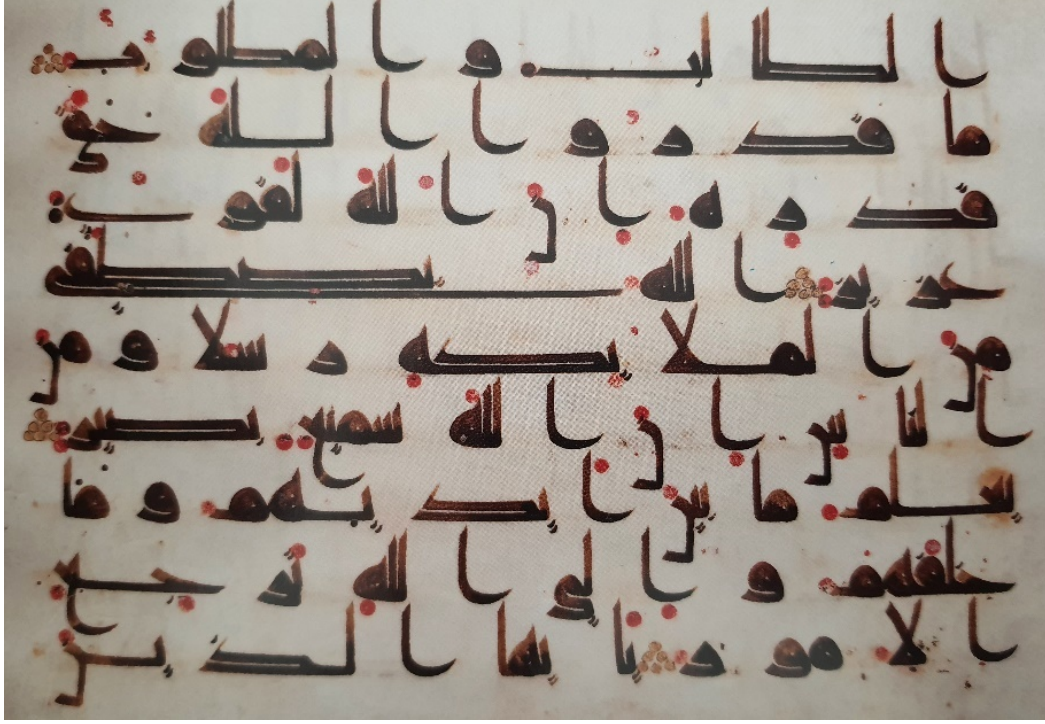 الطالب والمطلوب
ما قدروا الله حق
قدره إن الله لقوي
عزيز الله يصطفي
من الملائكة رسلا ومن
الناس إن الله سميع بصير
يعلم ما بين أيديهم وما
خلفهم وإلى الله ترجع
الأمور يأيها الذين